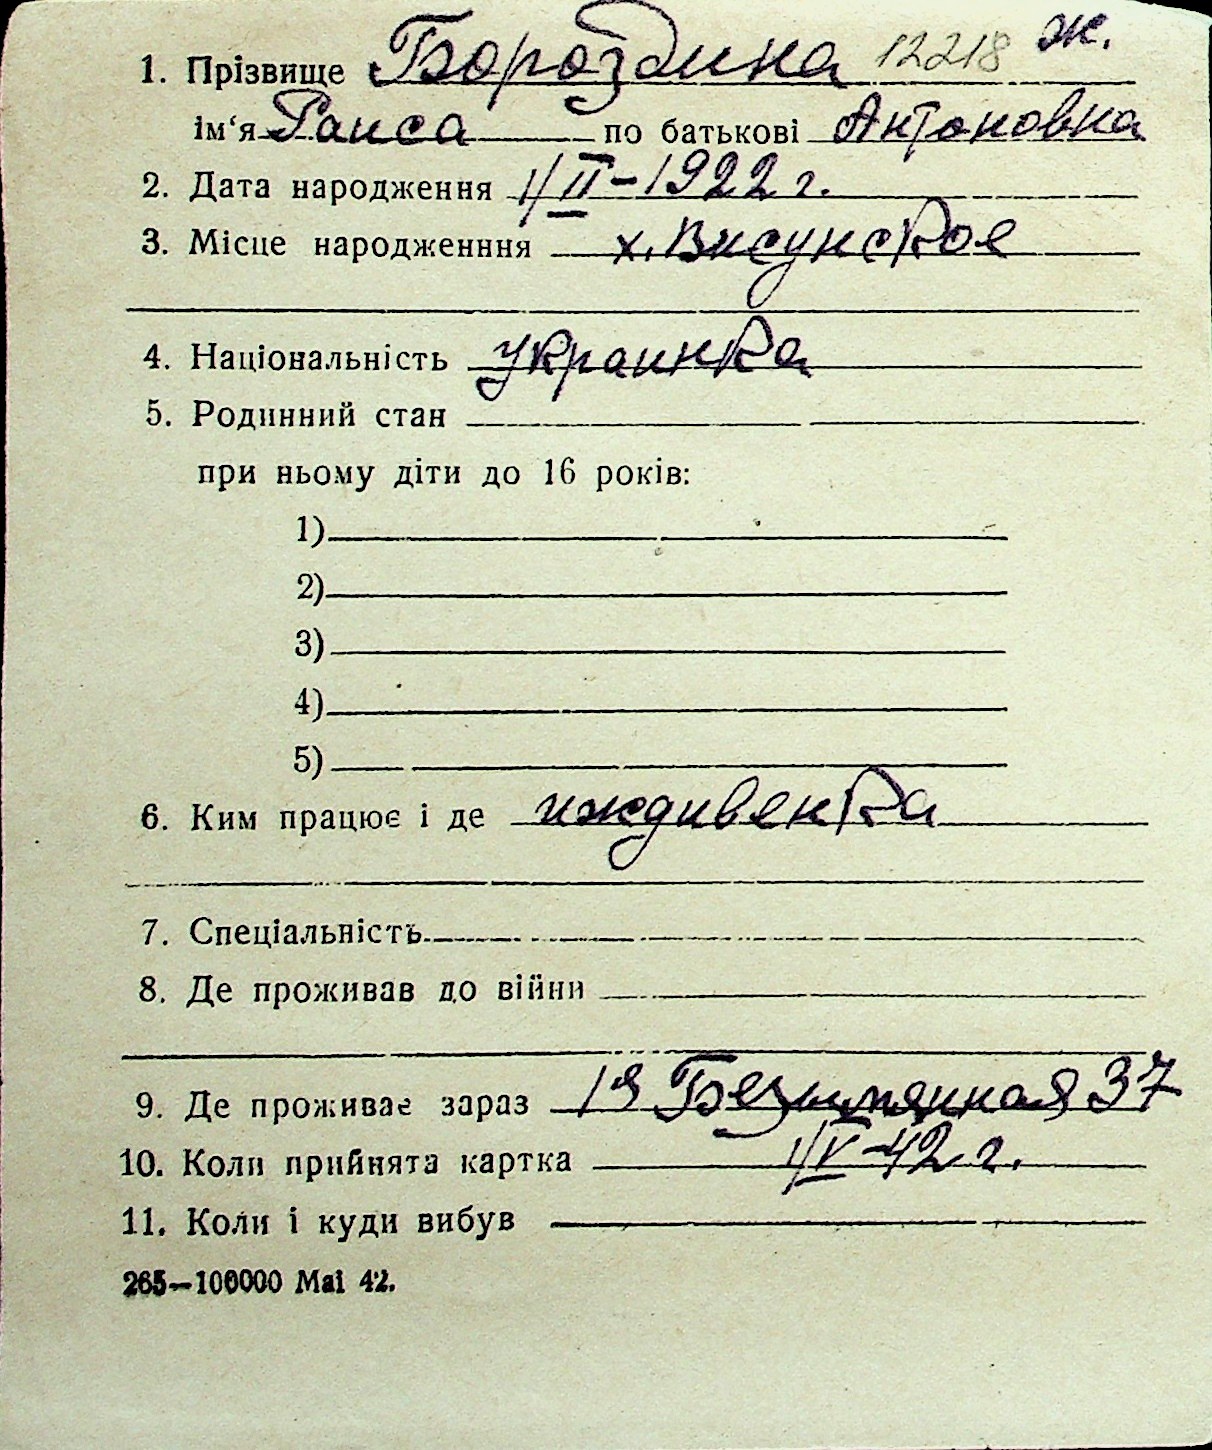 1. Прізвище Бороздина 12218 ж.
ім‘я Раиса по батькові Антоновна
2. Дата народження 1/II-1922 г.
3. Місце народженння х. Висунское
4. Національність украинка
5. Родинний стан
при ньому діти до 16 років:
1)
2)
3)
4)
5)
6. Ким працює і де иждивенка
7. Спеціальність
8. Де проживав до війни
9. Де проживає зараз 1я Безымянная 37
10. Коли прийнята картка 1/V-42 г.
11. Коли і куди вибув
265—100000 Mai 42.